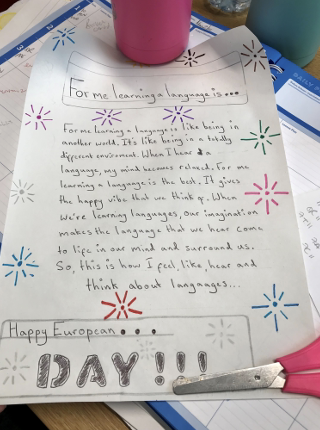 For me learning a language is...
For me learning a language is like being in
another world. It's like being in a totally
different enviroment. When I hear a
language, my mind becomes relaxed. For me
learning a language is the best. It gives
the happy vibe that we think of. When
we're learning languages, our imagination
makes the language that we hear come
to life in our mind and surround us.
So, this is how I feel, like, hear and
think about languages...
Happy European...
DAY!!!